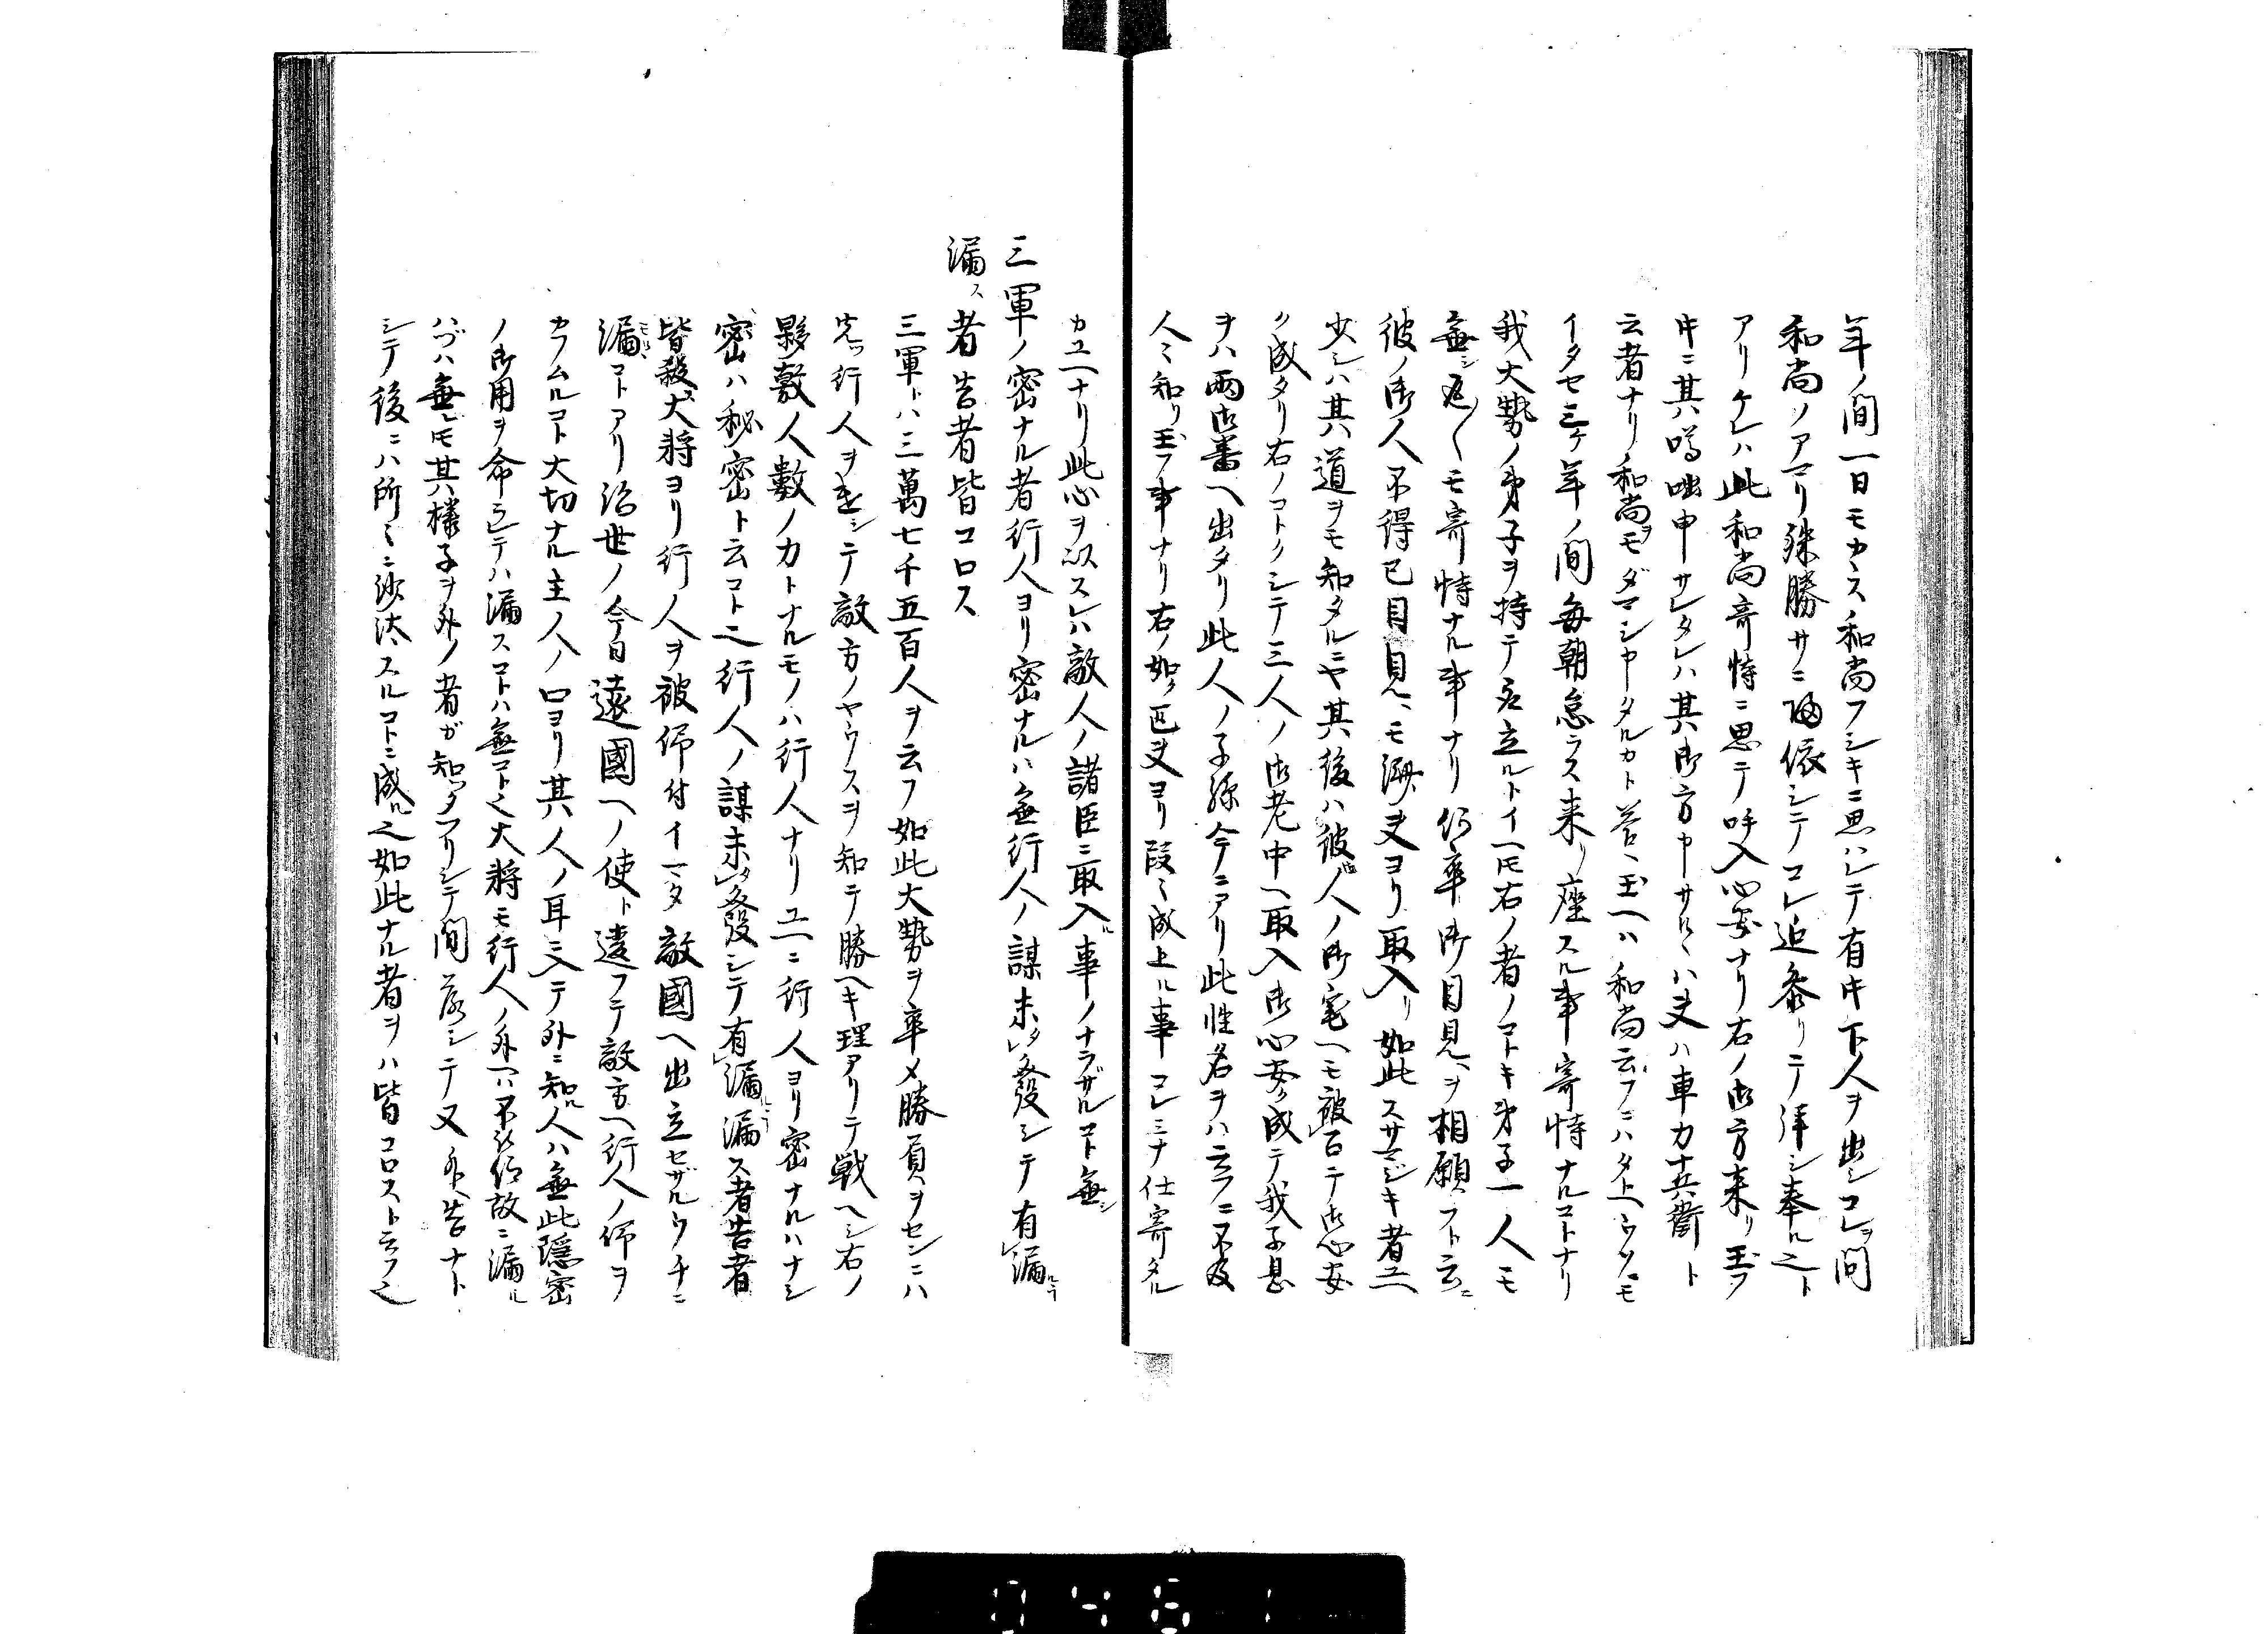 年ノ間一日モカヽス和尚フシキニ思ハレテ有中下人ヲ出シコレヲ問
和尚ノアマリ殊勝サニ帰依シテコレ迄参リテ拝シ奉ル之ト
アリケレハ此和尚奇特ニ思テ呼入心安ナリ右ノ御方来リ玉フ
中ニ其噂咄申サレタレハ其御方申サルヽハ夫ハ車力十兵衛ト
云者ナリ和尚ヲモダマシ申タルカト答ヘ玉ヘハ和尚云フニハタトヘウソニモ
イタセ三ケ年ノ間毎朝怠ラス来リ座スル事寄特ナルコトナリ
我大勢ノ弟子ヲ持テ居ルトイヘ𪜈右ノ者ノコトキ弟子一人モ
無シ返〱モ寄特ナル事ナリ何卒御目見ヲ相願フト云ニ
彼ノ御人不得已目見ヘモ済夫ヨリ取入リ如此スサマジキ者ユヘ
少シハ其道ヲモ知タルニヤ其後ハ彼人ノ御宅ヘモ被召テ御心安
ク成タリ右ノコトクシテ三人ノ御老中ヘ取入御心安ク成テ我子息
ヲハ両御番ヘ出タリ此人ノ子孫今ニアリ此姓名ヲハ云フニ不及
人々知リ玉フ事ナリ右ノ如ク匹夫ヨリ段々成上ル事コレミナ仕寄タル
カユヘナリ此心ヲ以スレハ敵人ノ諸臣ニ取入ル事ノナラザルコト無シ
三軍ノ密ナル者行人ヨリ密ナルハ無行人ノ謀未タ發シテ有漏ルヽ
漏ス者告者皆コロス
三軍トハ三萬七千五百人ヲ云フ如此大勢ヲ率メ勝負ヲセンニハ
先ツ行人ヲ遣シテ敵方ノヤウスヲ知テ勝ヘキ理アリテ戦ヘシ右ノ
夥敷人數ノカトナルモノハ行人ナリユヘニ行人ヨリ密ナルハナシ
密ハ秘密ト云コト之行人ノ謀未タ發シテ有漏ルヽ漏ス者告者
皆殺大将ヨリ行人ヲ被仰付イマタ敵國ヘ出立セザルウチニ
漏コトアリ治世ノ今日遠國ヘノ使ト違フテ敵方ヘ行人ノ仰ヲ
カフムルコト大切ナル主ノ人ノ口ヨリ其人ノ耳ニ入テ外ニ知ル人ハ無此隠密
ノ御用ヲ命シテハ漏スコトハ無コト之大将モ行人ノ外ヘハ不被仰故ニ漏ル
ハヅハ無レ𪜈其様子ヲ外ノ者ガ知タマリシテ間ニ落シテ又外ヘ告ナト
シテ後ニハ所々ニ沙汰スルコトニ成ル之如此ナル者ヲハ皆コロスト云フ之